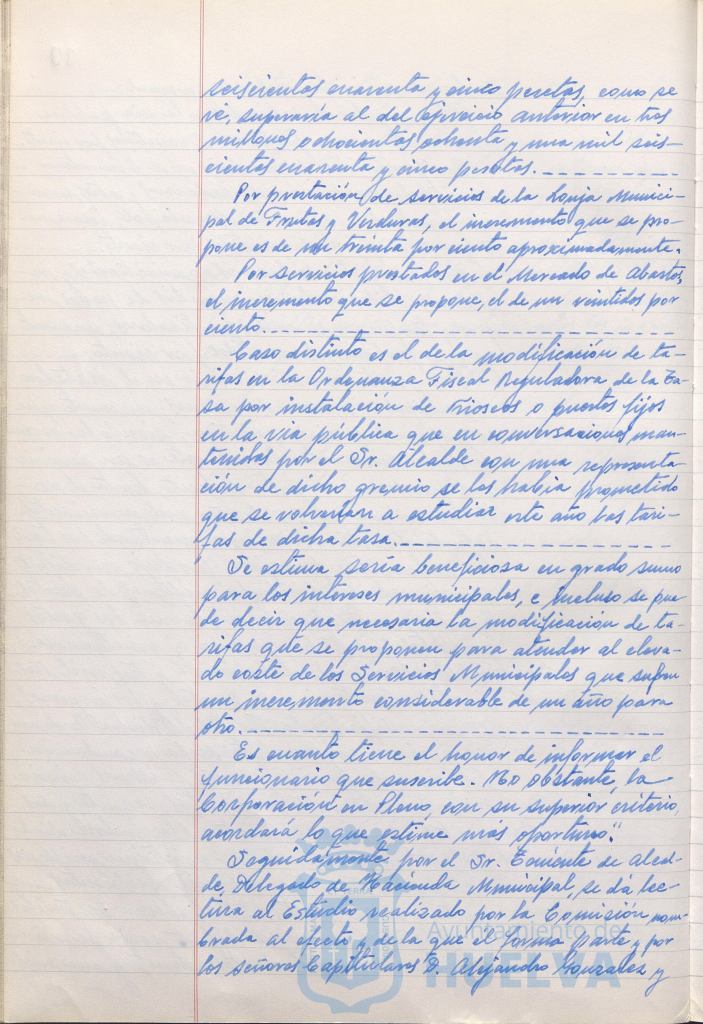 seiscientos cuarenta y cinco pesetas, como se
vé, superaría al del ejercicio anterior en tres
millones ochocientas ochenta y una mil seis-
cientas cuarenta y cinco pesetas.
Por prestación de servicios de la Lonja Munici-
pal de Frutas y Verduras, el incremento que se pro-
pone es de un treinta por ciento aproximadamente.
Por servicios prestados en el Mercado de Abastos,
el incremento que se propone, el de un veintidos por
ciento.
Caso distinto es el de la modificación de ta-
rifas en la Ordenanza Fiscal Reguladora de la Ta-
sa por instalación de Kioscos o puestos fijos
en la via pública que en conversaciones man-
tenidas por el Sr. Alcalde con una representa-
ción de dicho gremio se les había prometido
que se volverían a estudiar este año las tari-
fas de dicha tasa.
Se estima sería beneficiosa en grado sumo
para los intereses municipales, e incluso se pue-
de decir que necesaria la modificación de ta-
rifas que se proponen para atender al eleva-
do coste de los Servicios Municipales que sufren
un incremento considerable de un año para
otro.
Es cuanto tiene el honor de informar el
funcionario que suscribe. No obstante, la
Corporación en Pleno, con su superior criterio,
acordará lo que estime más oportuno."
Seguidamente por el Sr. Teniente de Alcal-
de, Delegado de Hacienda Municipal, se dá lec-
tura al Estudio realizado por la Comisión nom-
brada al efecto, de la que él forma parte y por
los señores Capitulares D. Alejandro Gonzalez y
Ayuntamiento de
HUELVA